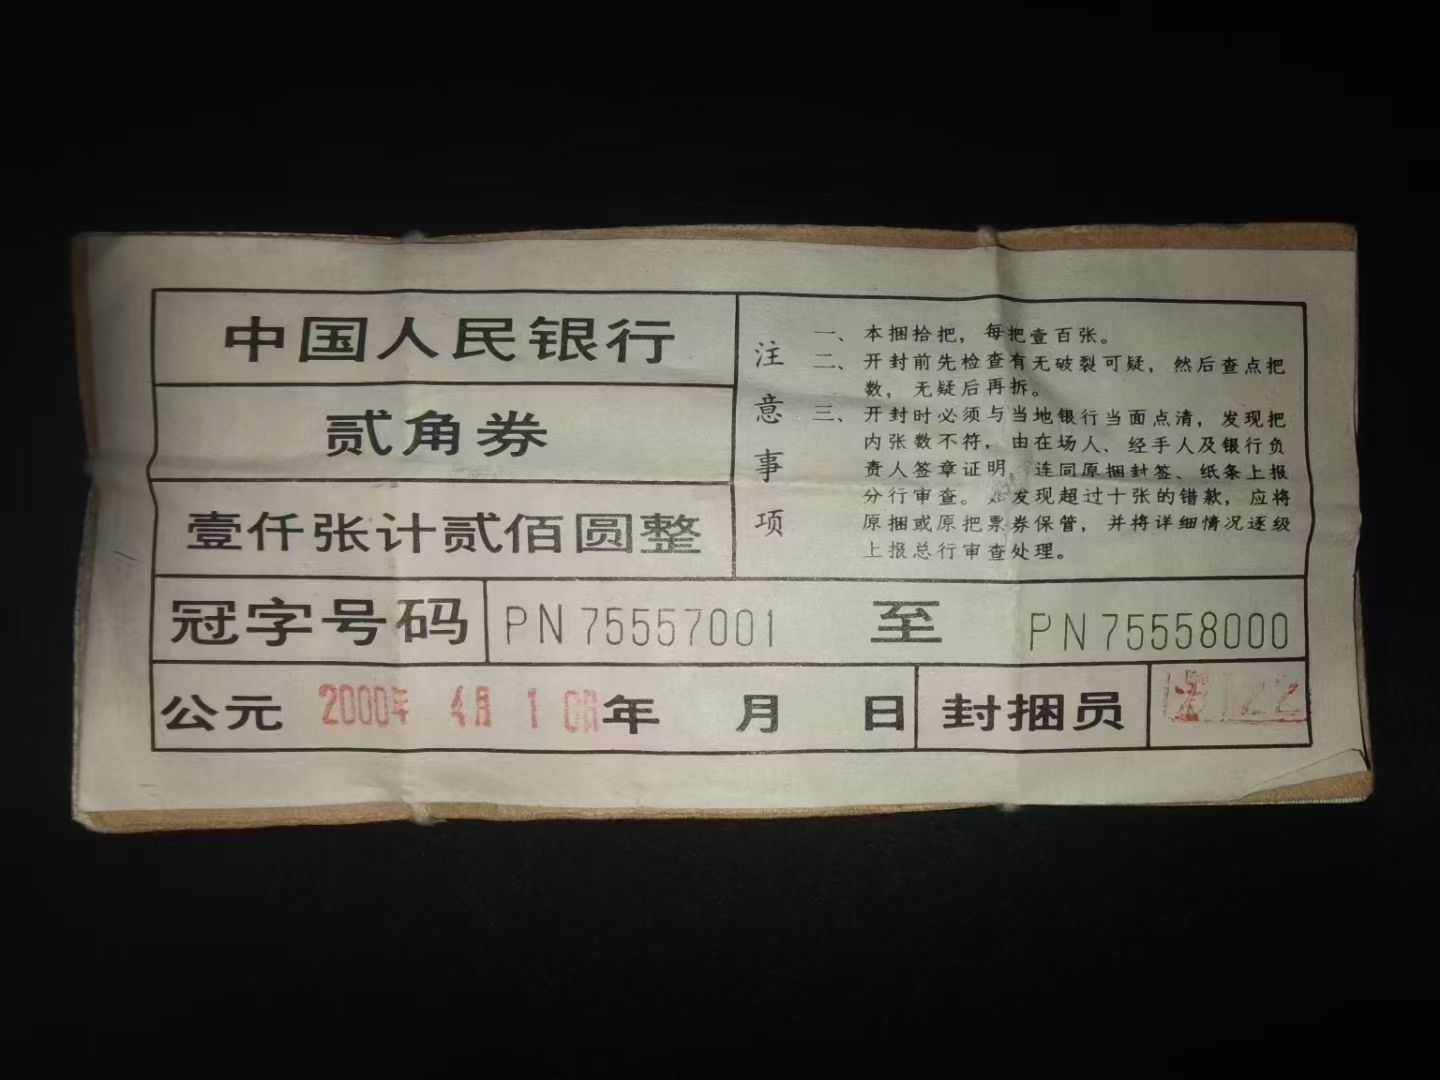 中国人民银行
贰角券
壹仟张计贰佰圆整
注意事项
一、本捆拾把，每把壹百张。
二、开封前先检查有无破裂可疑，然后查点把
数，无疑后再拆。
三、开封时必须与当地银行当面点清，发现把
内张数不符，由在场人、经手人及银行负
责人签章证明，连同原捆封签、纸条上报
分行审查。如发现超过十张的错款，应将
原捆或原把票券保管，并将详细情况逐级
上报总行审查处理。
冠字号码 PN75557001 至 PN75558000
公元 2000年 4月 1 日 年 月 日 封捆员